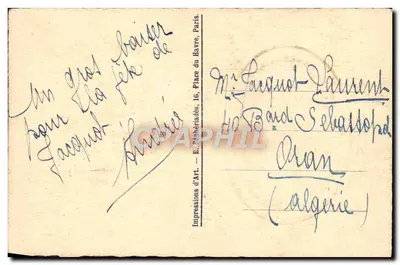 Un gros baiser
pour la fête de
Jacquot
Andrée
Impressions d'Art. — E. 10, Place du Havre, Paris.
Mr Jacquot Laurent
40 Bard Sébastopol
Oran
(Algérie)
CPAPHIL